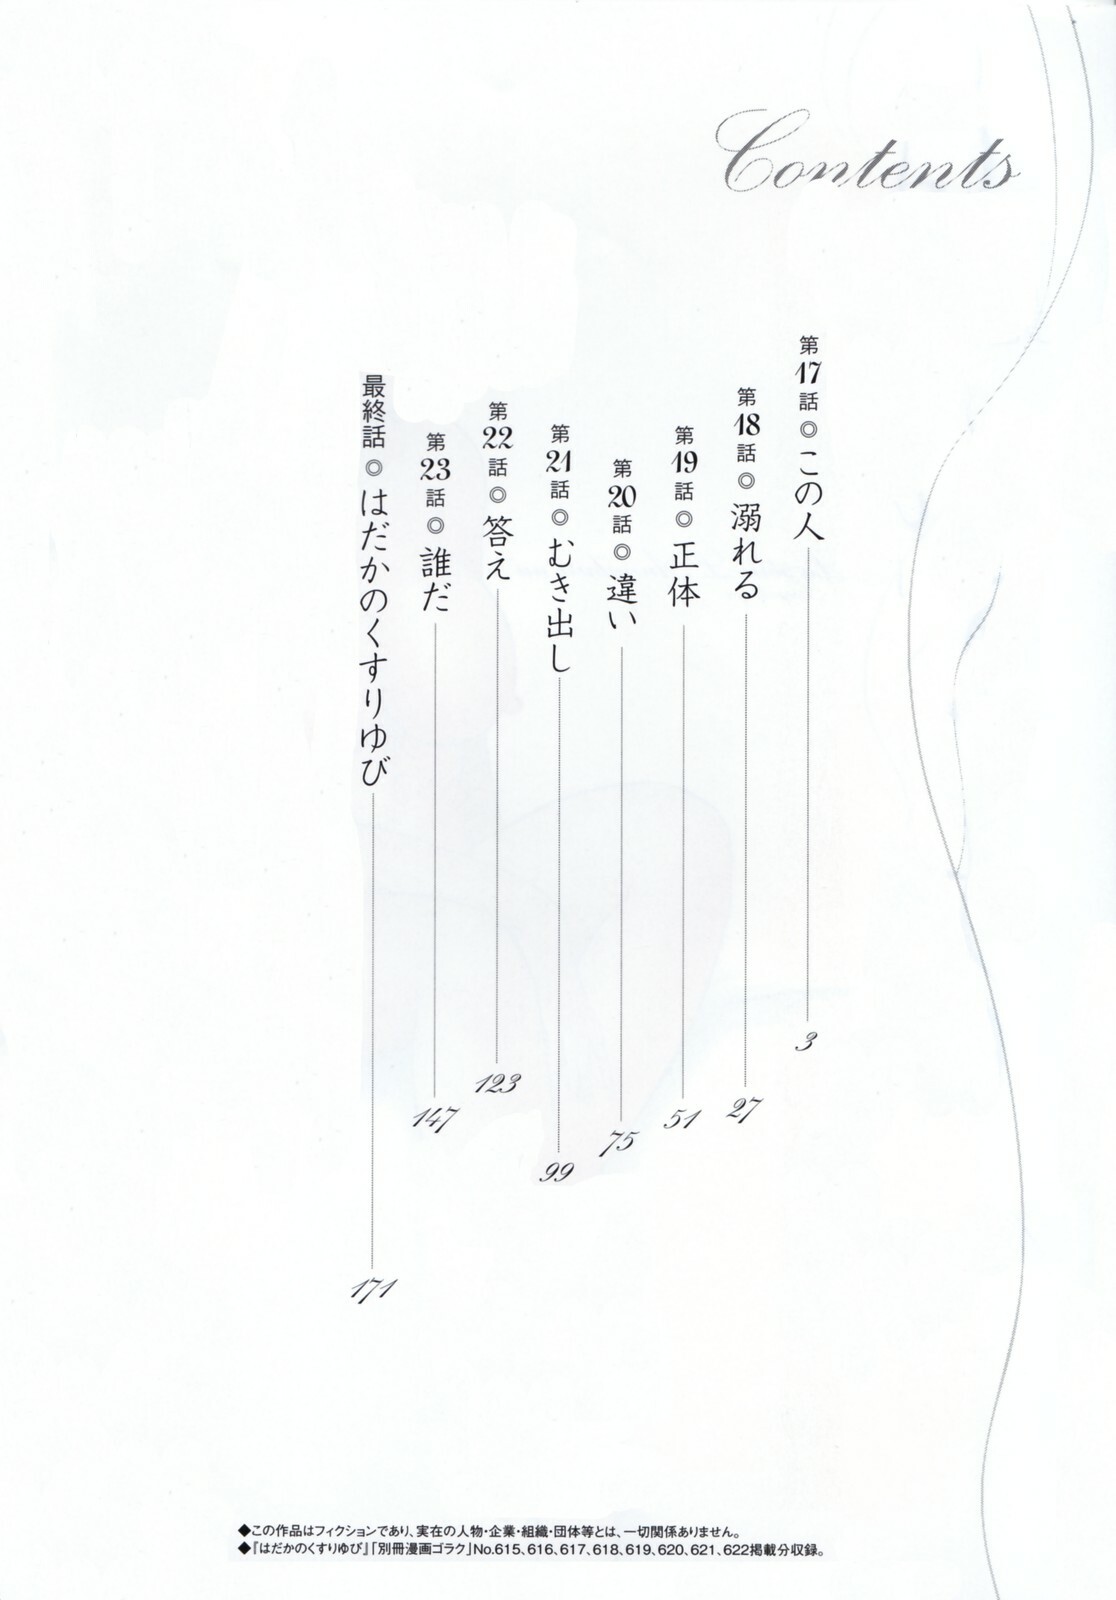 Contents
第17話◎この人 3
第18話◎溺れる 27
第19話◎正体 51
第20話◎違い 75
第21話◎むき出し 99
第22話◎答え 123
第23話◎誰だ 147
最終話◎はだかのくすりゆび 171
◆この作品はフィクションであり、実在の人物・企業・組織・団体等とは、一切関係ありません。
◆『はだかのくすりゆび』「別冊漫画ゴラク」No.615、616、617、618、619、620、621、622掲載分収録。